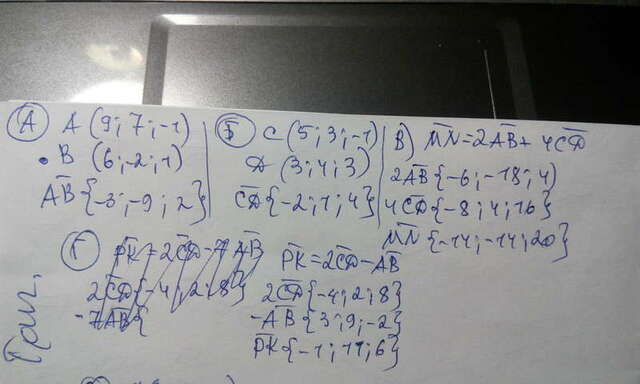 А A (9; 7; -1)
B (6; -2; 1)
AB {-3; -9; 2}
Б C (5; 3; -1)
D (3; 4; 3)
CD {-2; 1; 4}
В) MN = 2AB + 4CD
2AB {-6; -18; 4)
4CD {-8; 4; 16}
MN {-14; -14; 20}
Г PK = 2CD - 7AB
2CD {-4; 2; 8}
-7AB {
PK = 2CD - AB
2CD {-4; 2; 8}
-AB {3; 9; -2}
PK {-1; 11; 6}